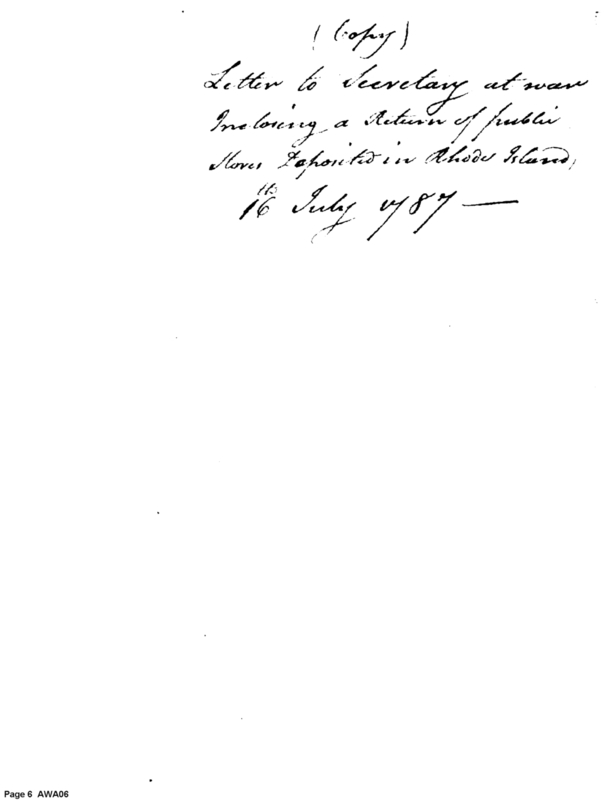 (Copy)
Letter to Secretary at war
Inclosing a Return of public
Stores Deposited in Rhode Island,
16th July 1787 —
Page 6 AWA06